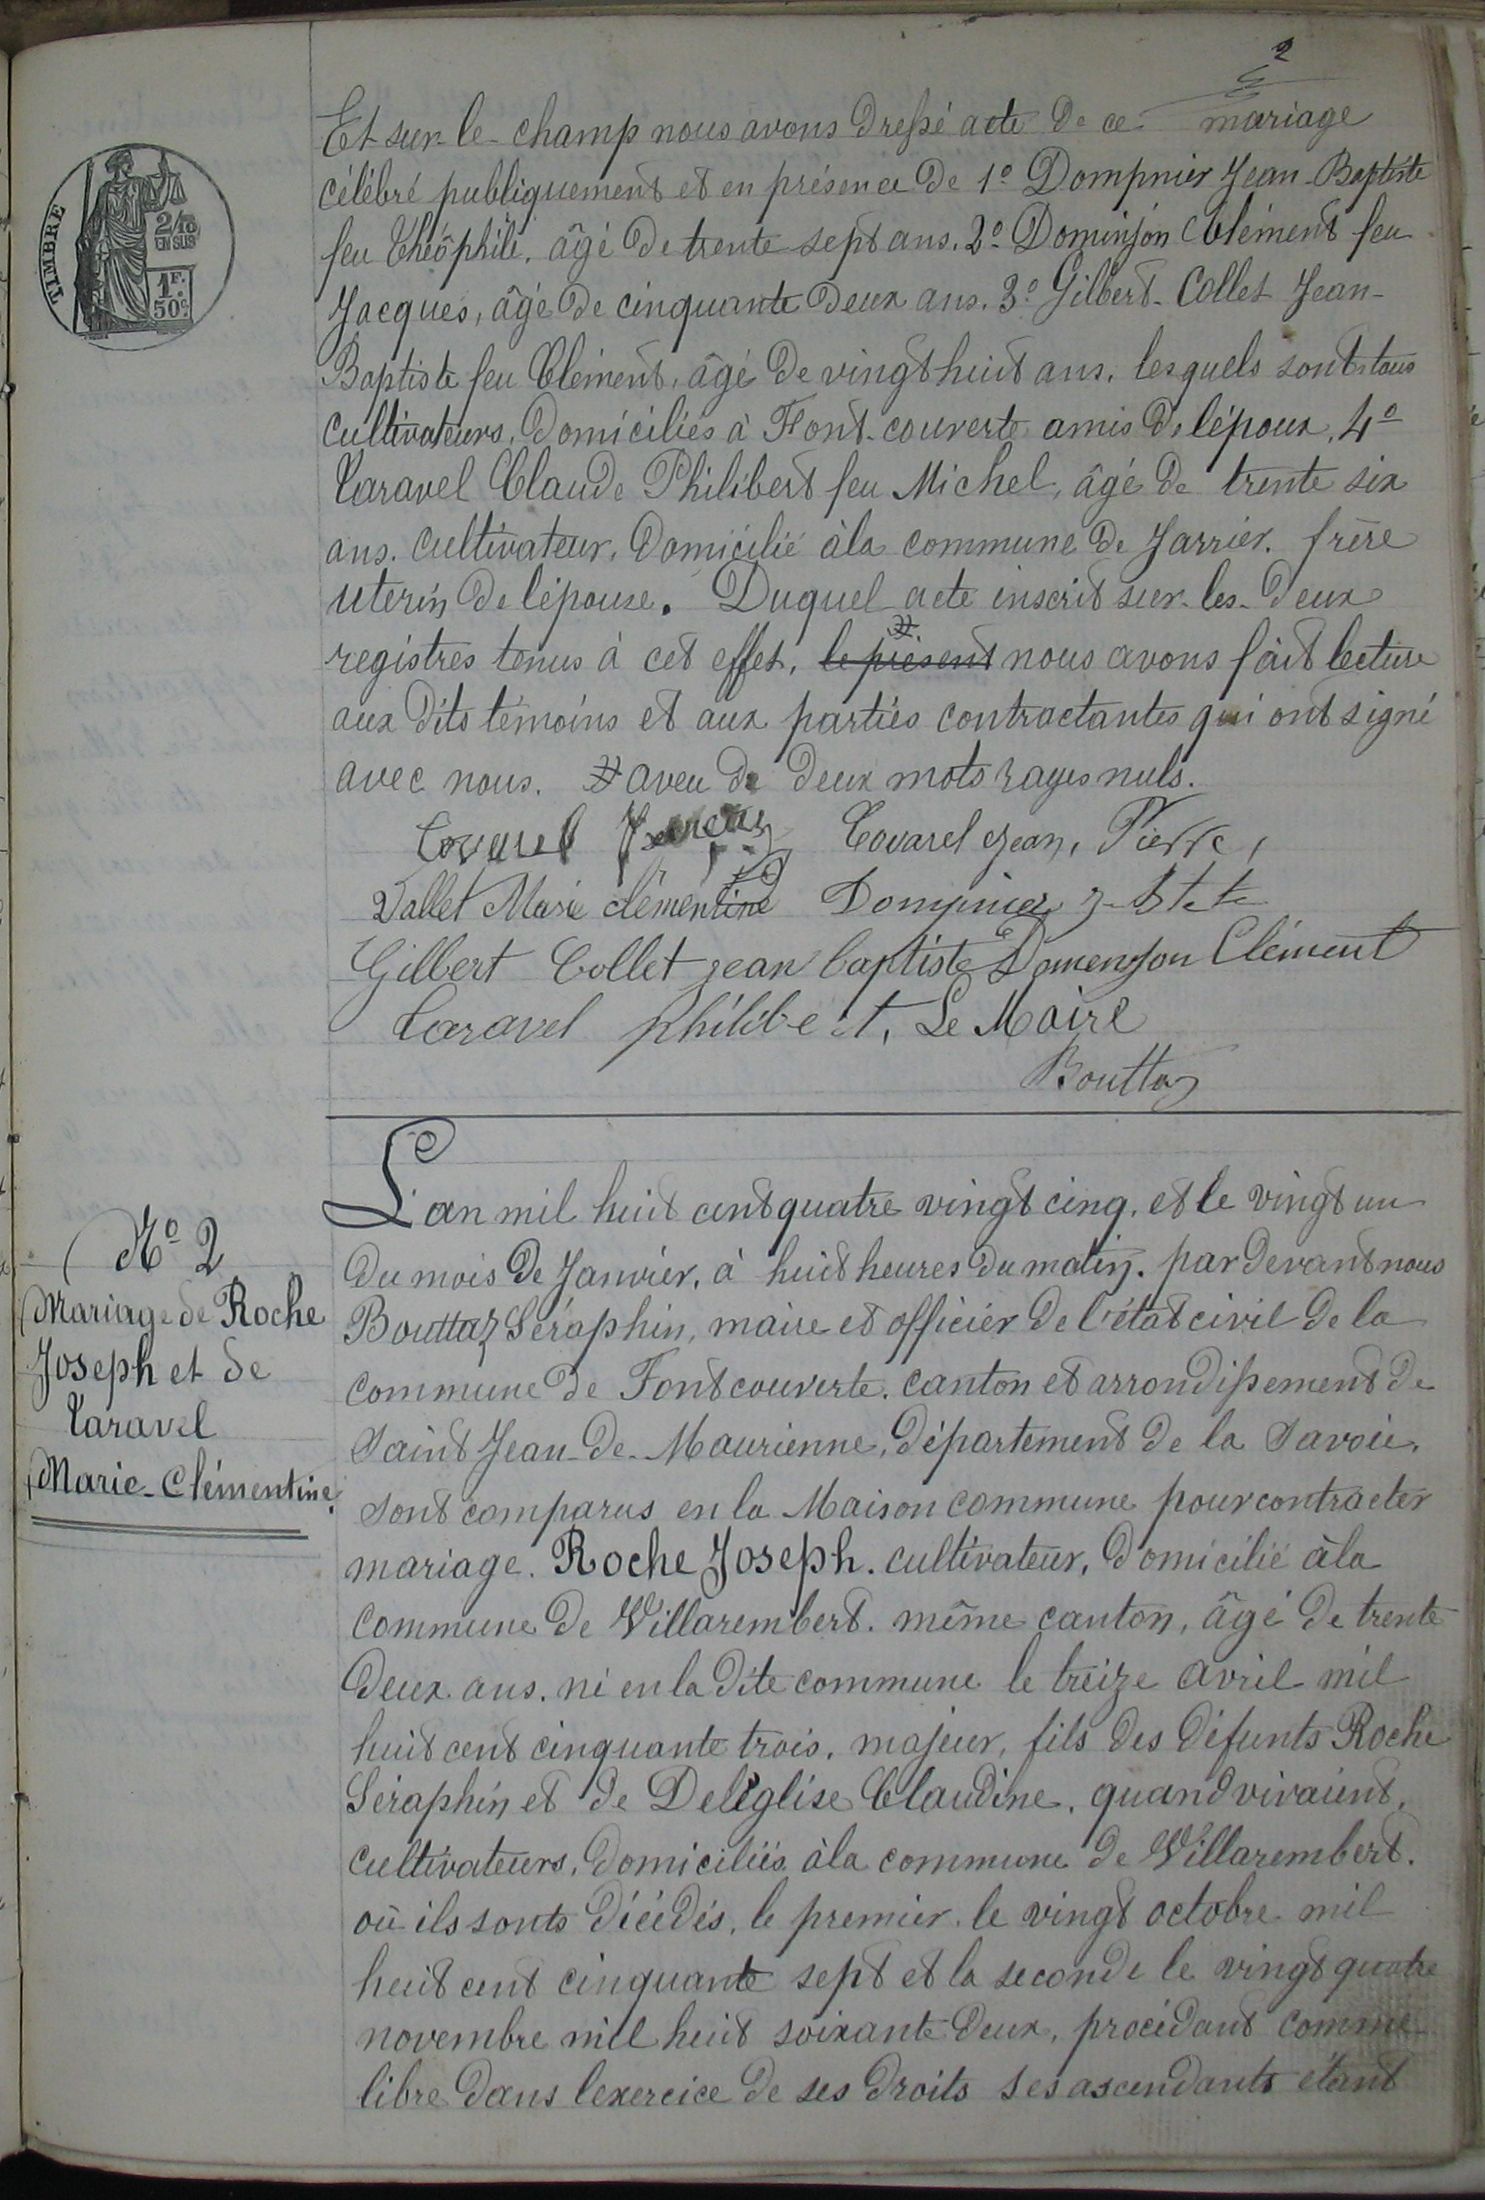 2
TIMBRE
2/10
EN SUS
1F.
50c.
Et sur-le-champ nous avons dressé acte de ce mariage
célébré publiquement et en présence de 1º Dompnier Jean-Baptiste
feu Théophile, âgé de trente sept ans. 2º Dominjon Clément feu
Jacques, âgé de cinquante deux ans. 3º Gilbert-Collet Jean-
Baptiste feu Clément, âgé de vingt huit ans, lesquels sont tous
cultivateurs, domiciliés à Font-couverte amis de l'époux, 4º
Taravel Claude Philibert feu Michel, âgé de trente six
ans. cultivateur, domicilié à la commune de Jarrier. frère
uterin de l'épouse. Duquel acte inscrit sur-les-deux
registres tenus à cet effet, le présent nous avons fait lecture
aux dits témoins et aux parties contractantes qui ont signé
avec nous. # aveu de deux mots rayés nuls.
Covarel Covarel Jean, Pierre,
Vallet Marie clémentine Dompnier J-Bte
Gilbert Collet jean baptiste Domenjon Clément
Taravel philibert, Le Maire
Bouttaz
Nº 2
Mariage de Roche
Joseph et de
Taravel
Marie-Clémentine.
L'an mil huit cent quatre vingt cinq, et le vingt un
du mois de Janvier, à huit heures du matin. par devant nous
Bouttaz Séraphin, maire et officier de l'état civil de la
commune de Fontcouverte. canton et arrondissement de
Saint Jean-de-Maurienne, département de la Savoie.
sont comparus en la Maison commune pour contracter
mariage. Roche Joseph. cultivateur, domicilié à la
commune de Villarembert. même canton, âgé de trente
deux ans. né en la dite commune le treize avril mil
huit cent cinquante trois, majeur, fils des défunts Roche
Séraphin et de Deléglise Claudine, quand vivaient,
cultivateurs, domiciliés à la commune de Villarembert.
où ils sonts décédés, le premier le vingt octobre mil
huit cent cinquante sept et la seconde le vingt quatre
novembre mil huit soixante deux, procédant comme
libre dans l'exercice de ses droits ses ascendants étant